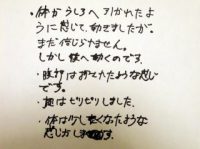 ・体がうしろへ引かれたよ
うに感じて、動きましたが、
まだ信じられません。
しかし体へ動くのです。
・腹抑はおてたたような感じ
です。
・ はビリビリしました。
・体は少し なたような
感じがし ます。